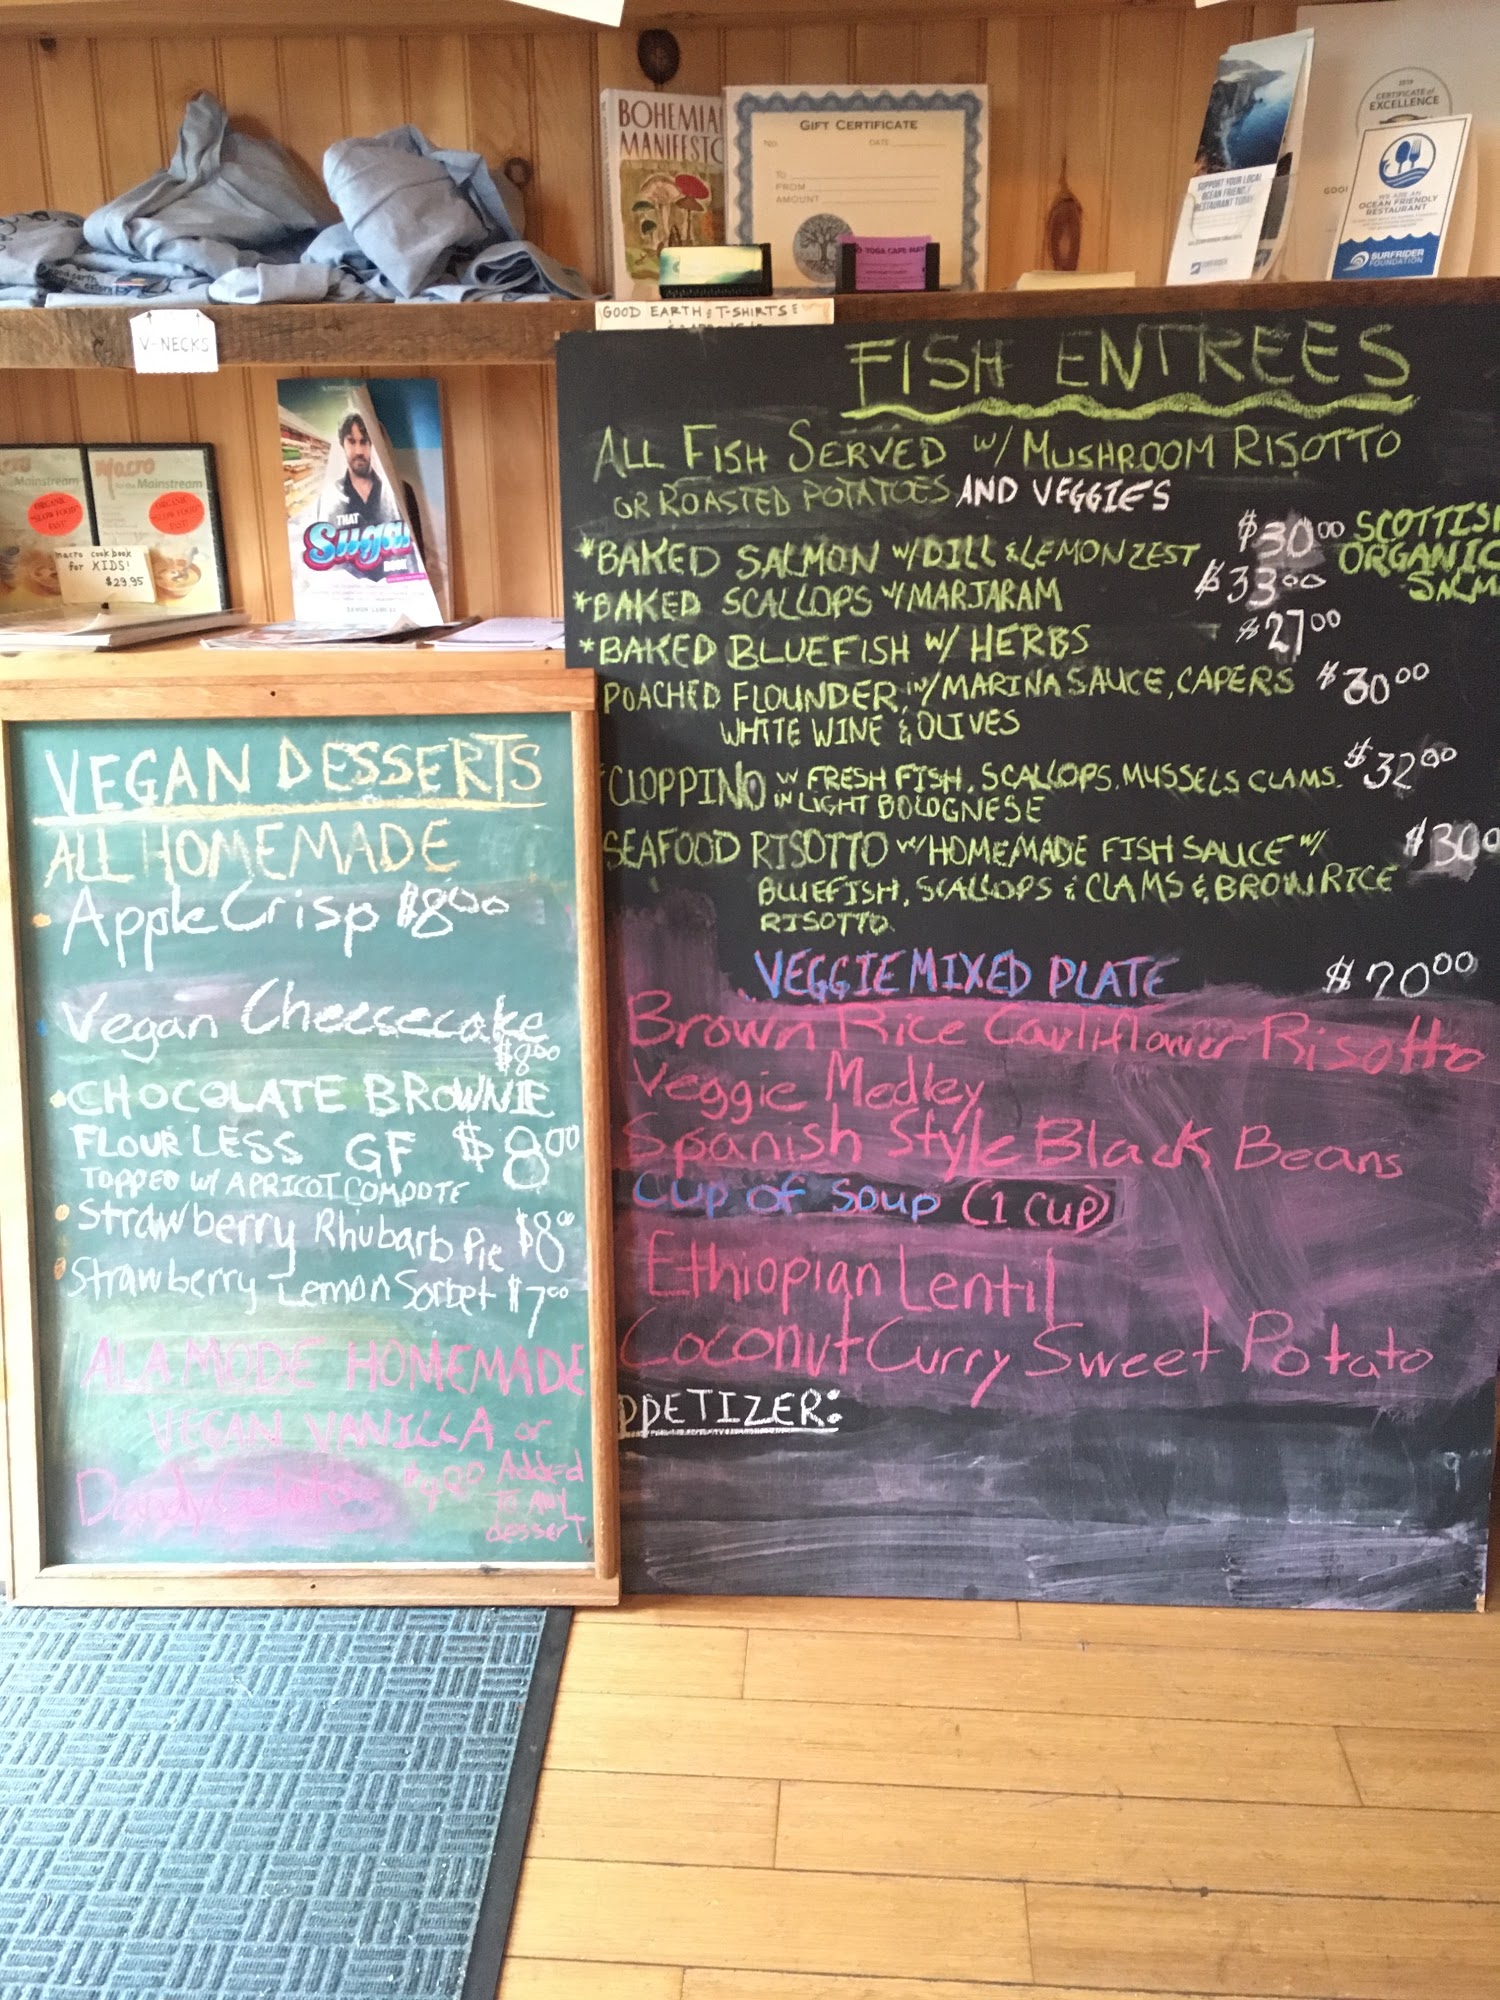 BOHEMIAN
MANIFESTO
GIFT CERTIFICATE
NO.
DATE
TO
FROM
AMOUNT
YOGA CAFE
SUPPORT YOUR LOCAL
OCEAN FRIENDLY
RESTAURANT TODAY
SURFRIDER
2019
CERTIFICATE of
EXCELLENCE
WE ARE AN
OCEAN FRIENDLY
RESTAURANT
SURFRIDER
FOUNDATION
V-NECKS
GOOD EARTH T-SHIRTS
Mainstream
ORGANIC
"SLOW FOOD"
Macro
for the Mainstream
ORGANIC
"SLOW FOOD"
macro cookbook
for KIDS!
$29.95
THAT
Sugar
BOOK
FISH ENTREES
ALL FISH SERVED W/ MUSHROOM RISOTTO
OR ROASTED POTATOES AND VEGGIES
*BAKED SALMON W/DILL & LEMON ZEST $30.00 SCOTTISH
ORGANIC
*BAKED SCALLOPS W/MARJARAM $33.00
*BAKED BLUEFISH W/ HERBS $27.00
POACHED FLOUNDER W/MARINA SAUCE, CAPERS $30.00
WHITE WINE & OLIVES
CIOPPINO W FRESH FISH, SCALLOPS, MUSSELS CLAMS. $32.00
IN LIGHT BOLOGNESE
SEAFOOD RISOTTO W/HOMEMADE FISH SAUCE W/ $30.0
BLUEFISH, SCALLOPS & CLAMS & BROWN RICE
RISOTTO.
VEGGIE MIXED PLATE $20.00
Brown Rice Cauliflower Risotto
Veggie Medley
Spanish Style Black Beans
Cup of Soup (1 cup)
Ethiopian Lentil
Coconut Curry Sweet Potato
PPETIZER:
VEGAN DESSERTS
ALL HOMEMADE
Apple Crisp $8.00
Vegan Cheesecake
$8.00
CHOCOLATE BROWNIE
FLOURLESS GF $8.00
TOPPED W/ APRICOT COMPOTE
Strawberry Rhubarb Pie $8.00
Strawberry Lemon Sorbet $7.00
ALA MODE HOMEMADE
VEGAN VANILLA or
Dandy Gelato Added
To ANY
dessert